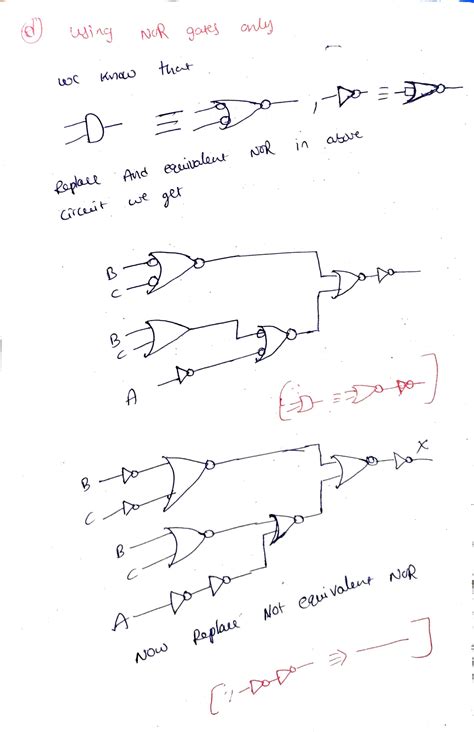 d) using NOR gates only
we know that
≡ , ≡
Replace And equivalent NOR in above
circuit we get
B
C
B
C
A
[ ≡ ]
B
C
X
B
C
A
Now Replace Not equivalent NOR
[∵ ⇒ ]